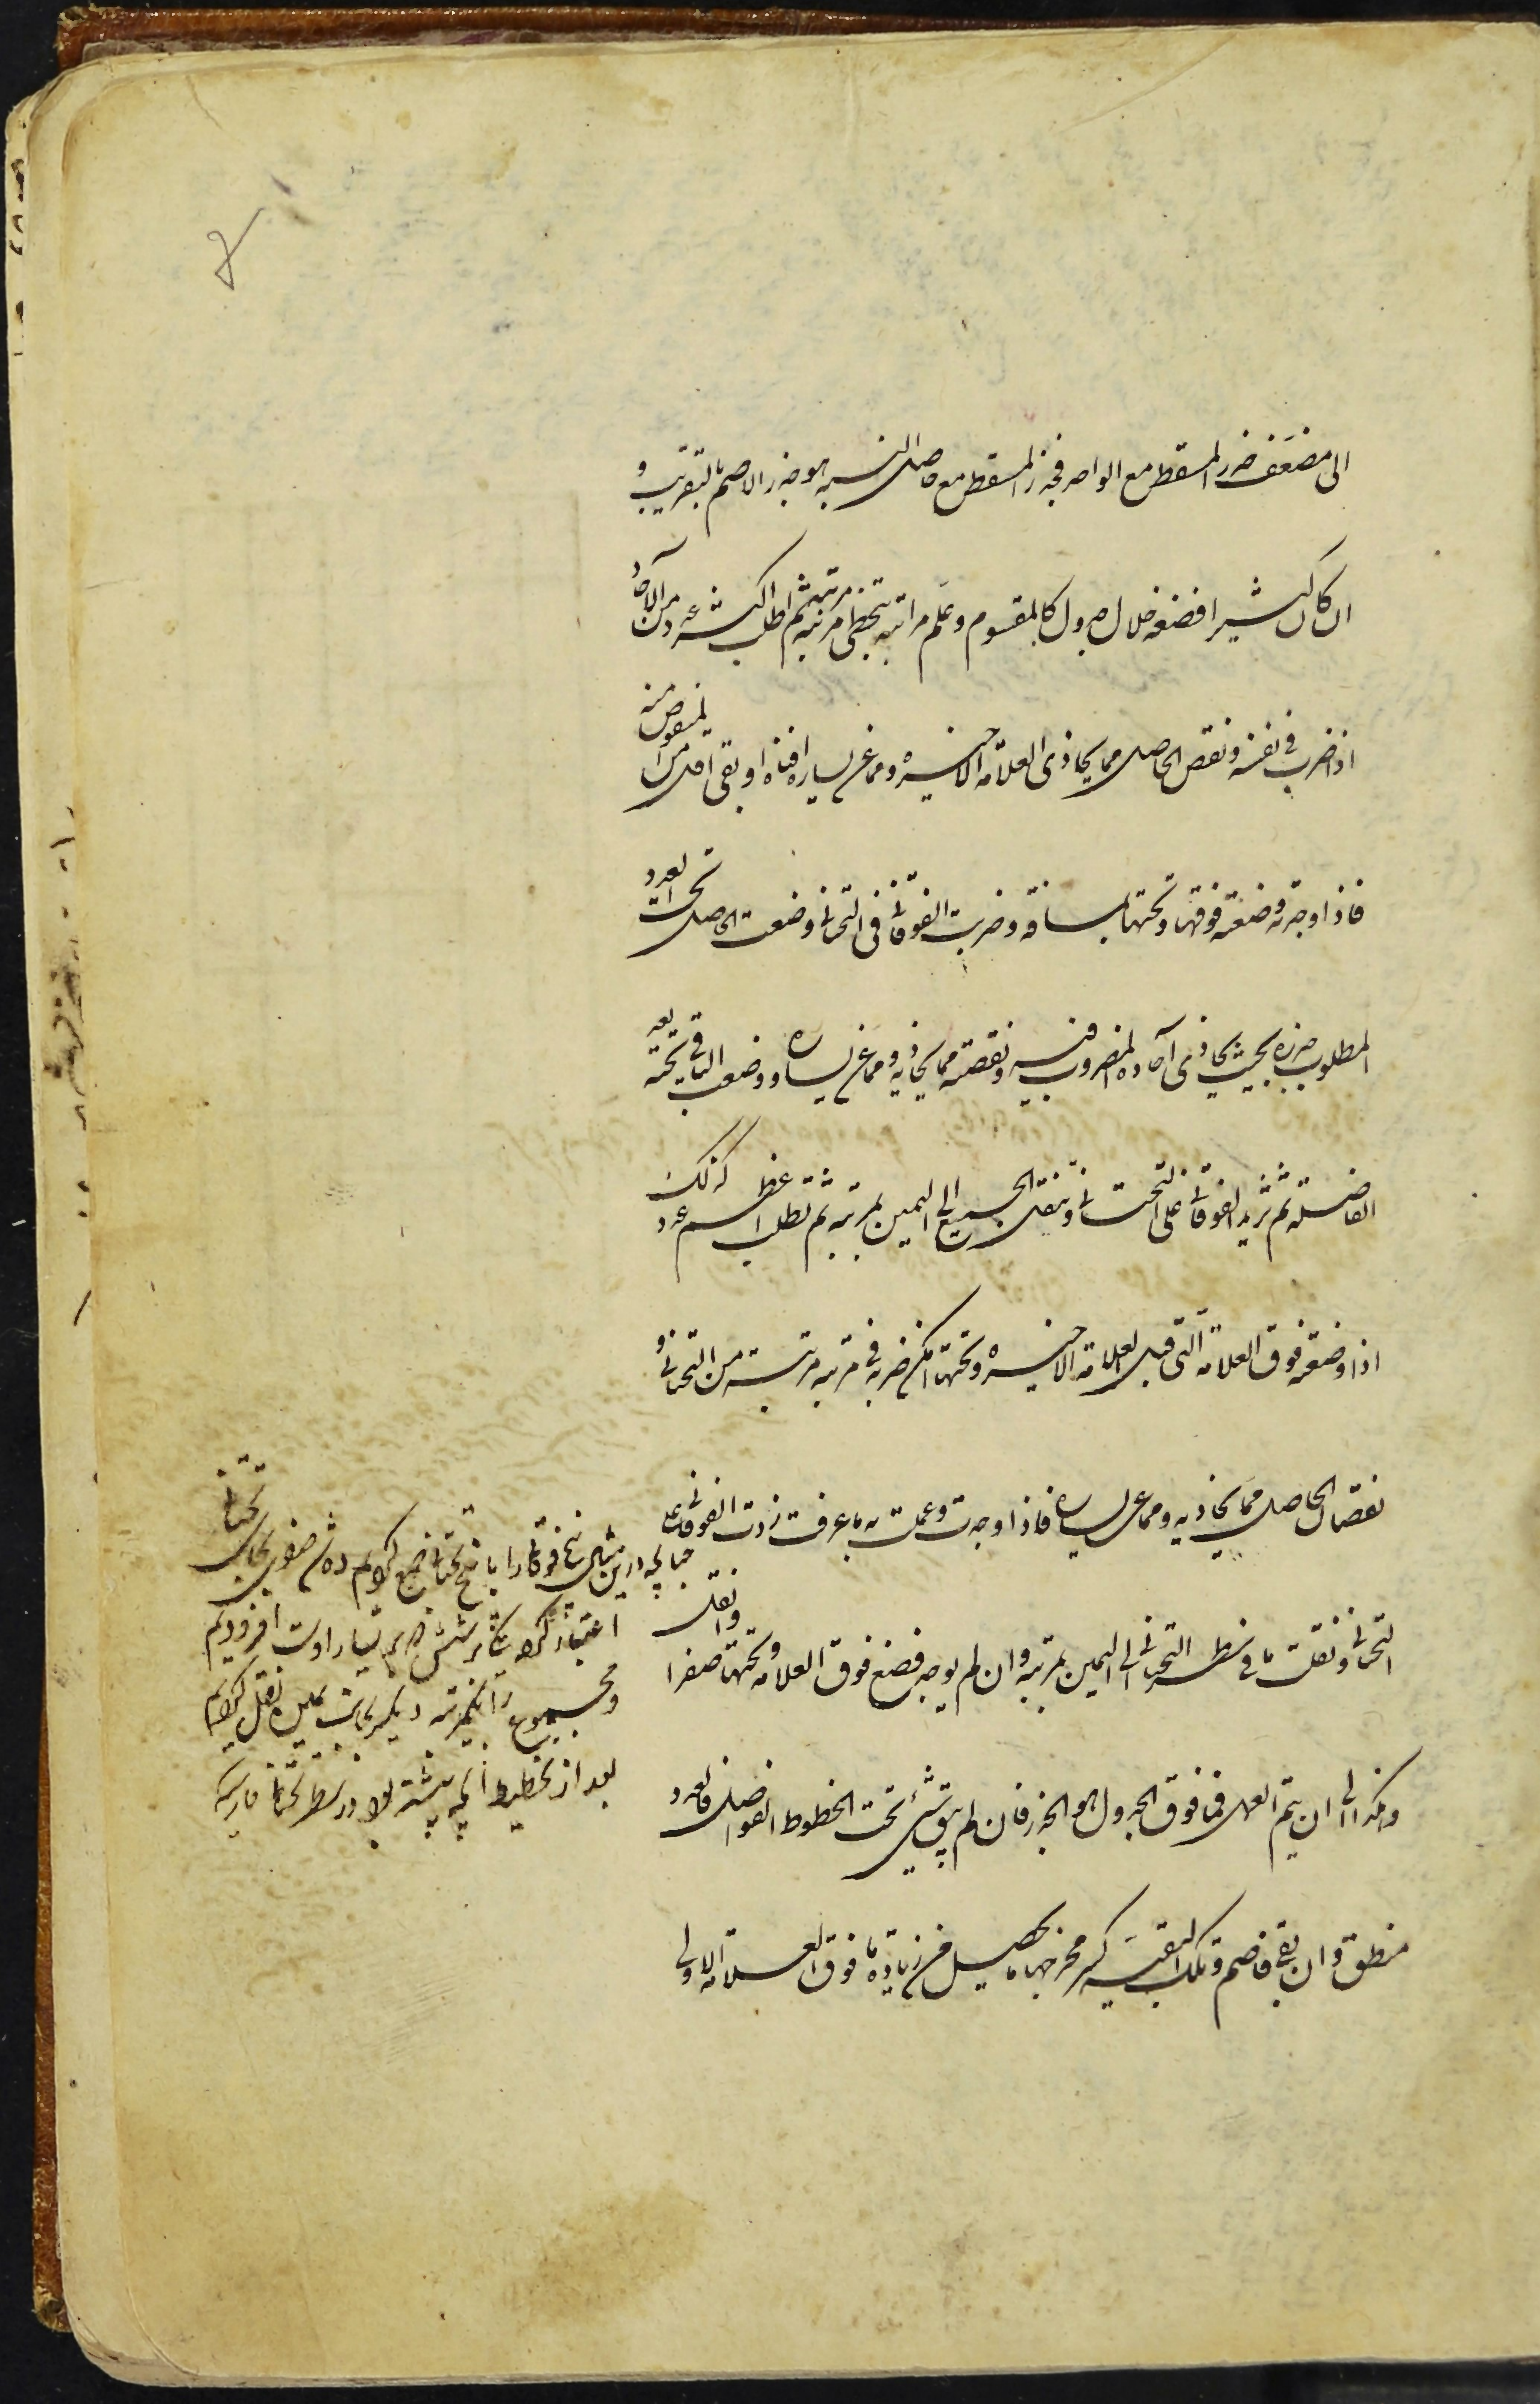 الى مضعف جذر المسقط مع الواحد فجذر المسقط مع حاصل النسبة هو جذر الاصم بالتقريب و
ان كان كثيرا فضعه خلال جدول كالمقسوم وعلم مراتبه بتخطى مرتبة مرتبة ثم اطلب اكثر عدد من الآحاد
اذا ضرب فى نفسه ونقص الحاصل مما يحاذى العلامة الاخيرة ومما عن يساره افناه او بقى اقل من المنقوص منه
فاذا وجدته وضعته فوقها وتحتها بمسافة وضربت الفوقانى فى التحتانى وضعت الحاصل تحت العدد
المطلوب جذره بحيث يحاذى آحاده المضروب فيه ونقصته مما يحاذيه ومما عن يساره ووضعت الباقى تحته بعد
الفاصلة ثم تزيد الفوقانى على التحتانى وتنقل الجميع الى اليمين بمرتبة ثم تطلب اعظم عدد كذلك
اذا وضعته فوق العلامة التى قبل العلامة الاخيرة وتحتها امكن ضربه فى مرتبة مرتبة من التحتانى و
نقصان الحاصل مما يحاذيه ومما عن يساره فاذا وجدت وعملت به ما عرفت زدت الفوقانى على
التحتانى ونقلت ما فى سطر التحتانى الى اليمين بمرتبة وان لم يوجد فضع فوق العلامة وتحتها صفرا وانقل
وهكذا الى ان يتم العمل فما فوق الجدول هو الجذر فان لم يبق شئ تحت الخطوط الفواصل فالعدد
منطق وان بقى فاصم وتلك البقية كسر مخرجها ما يحصل من زيادة ما فوق العلامة الاولى
چنانچه درين مثال پنج فوقانى را با پنج تحتانى جمع كرديم ده شد صفرى بجاى تحتانى
اعتبار كرده يكى بر شش كه بر يسار اوست افزوديم
ومجموع را بمرتبه ديكر بجانب يمين نقل كرديم
بعد از تخطيط آنچه پيشتر بود در سطر تحتانى فارسيه